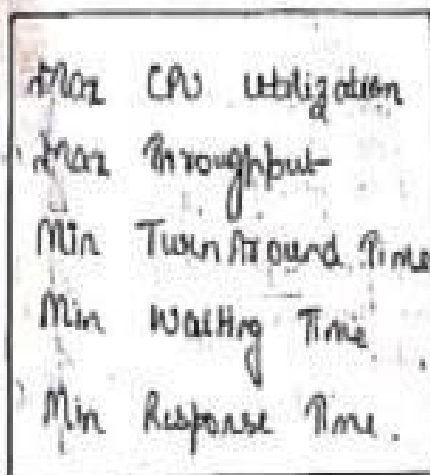 Max CPU utilization
Max Throughput
Min Turn Around Time
Min Waiting Time
Min Response Time.